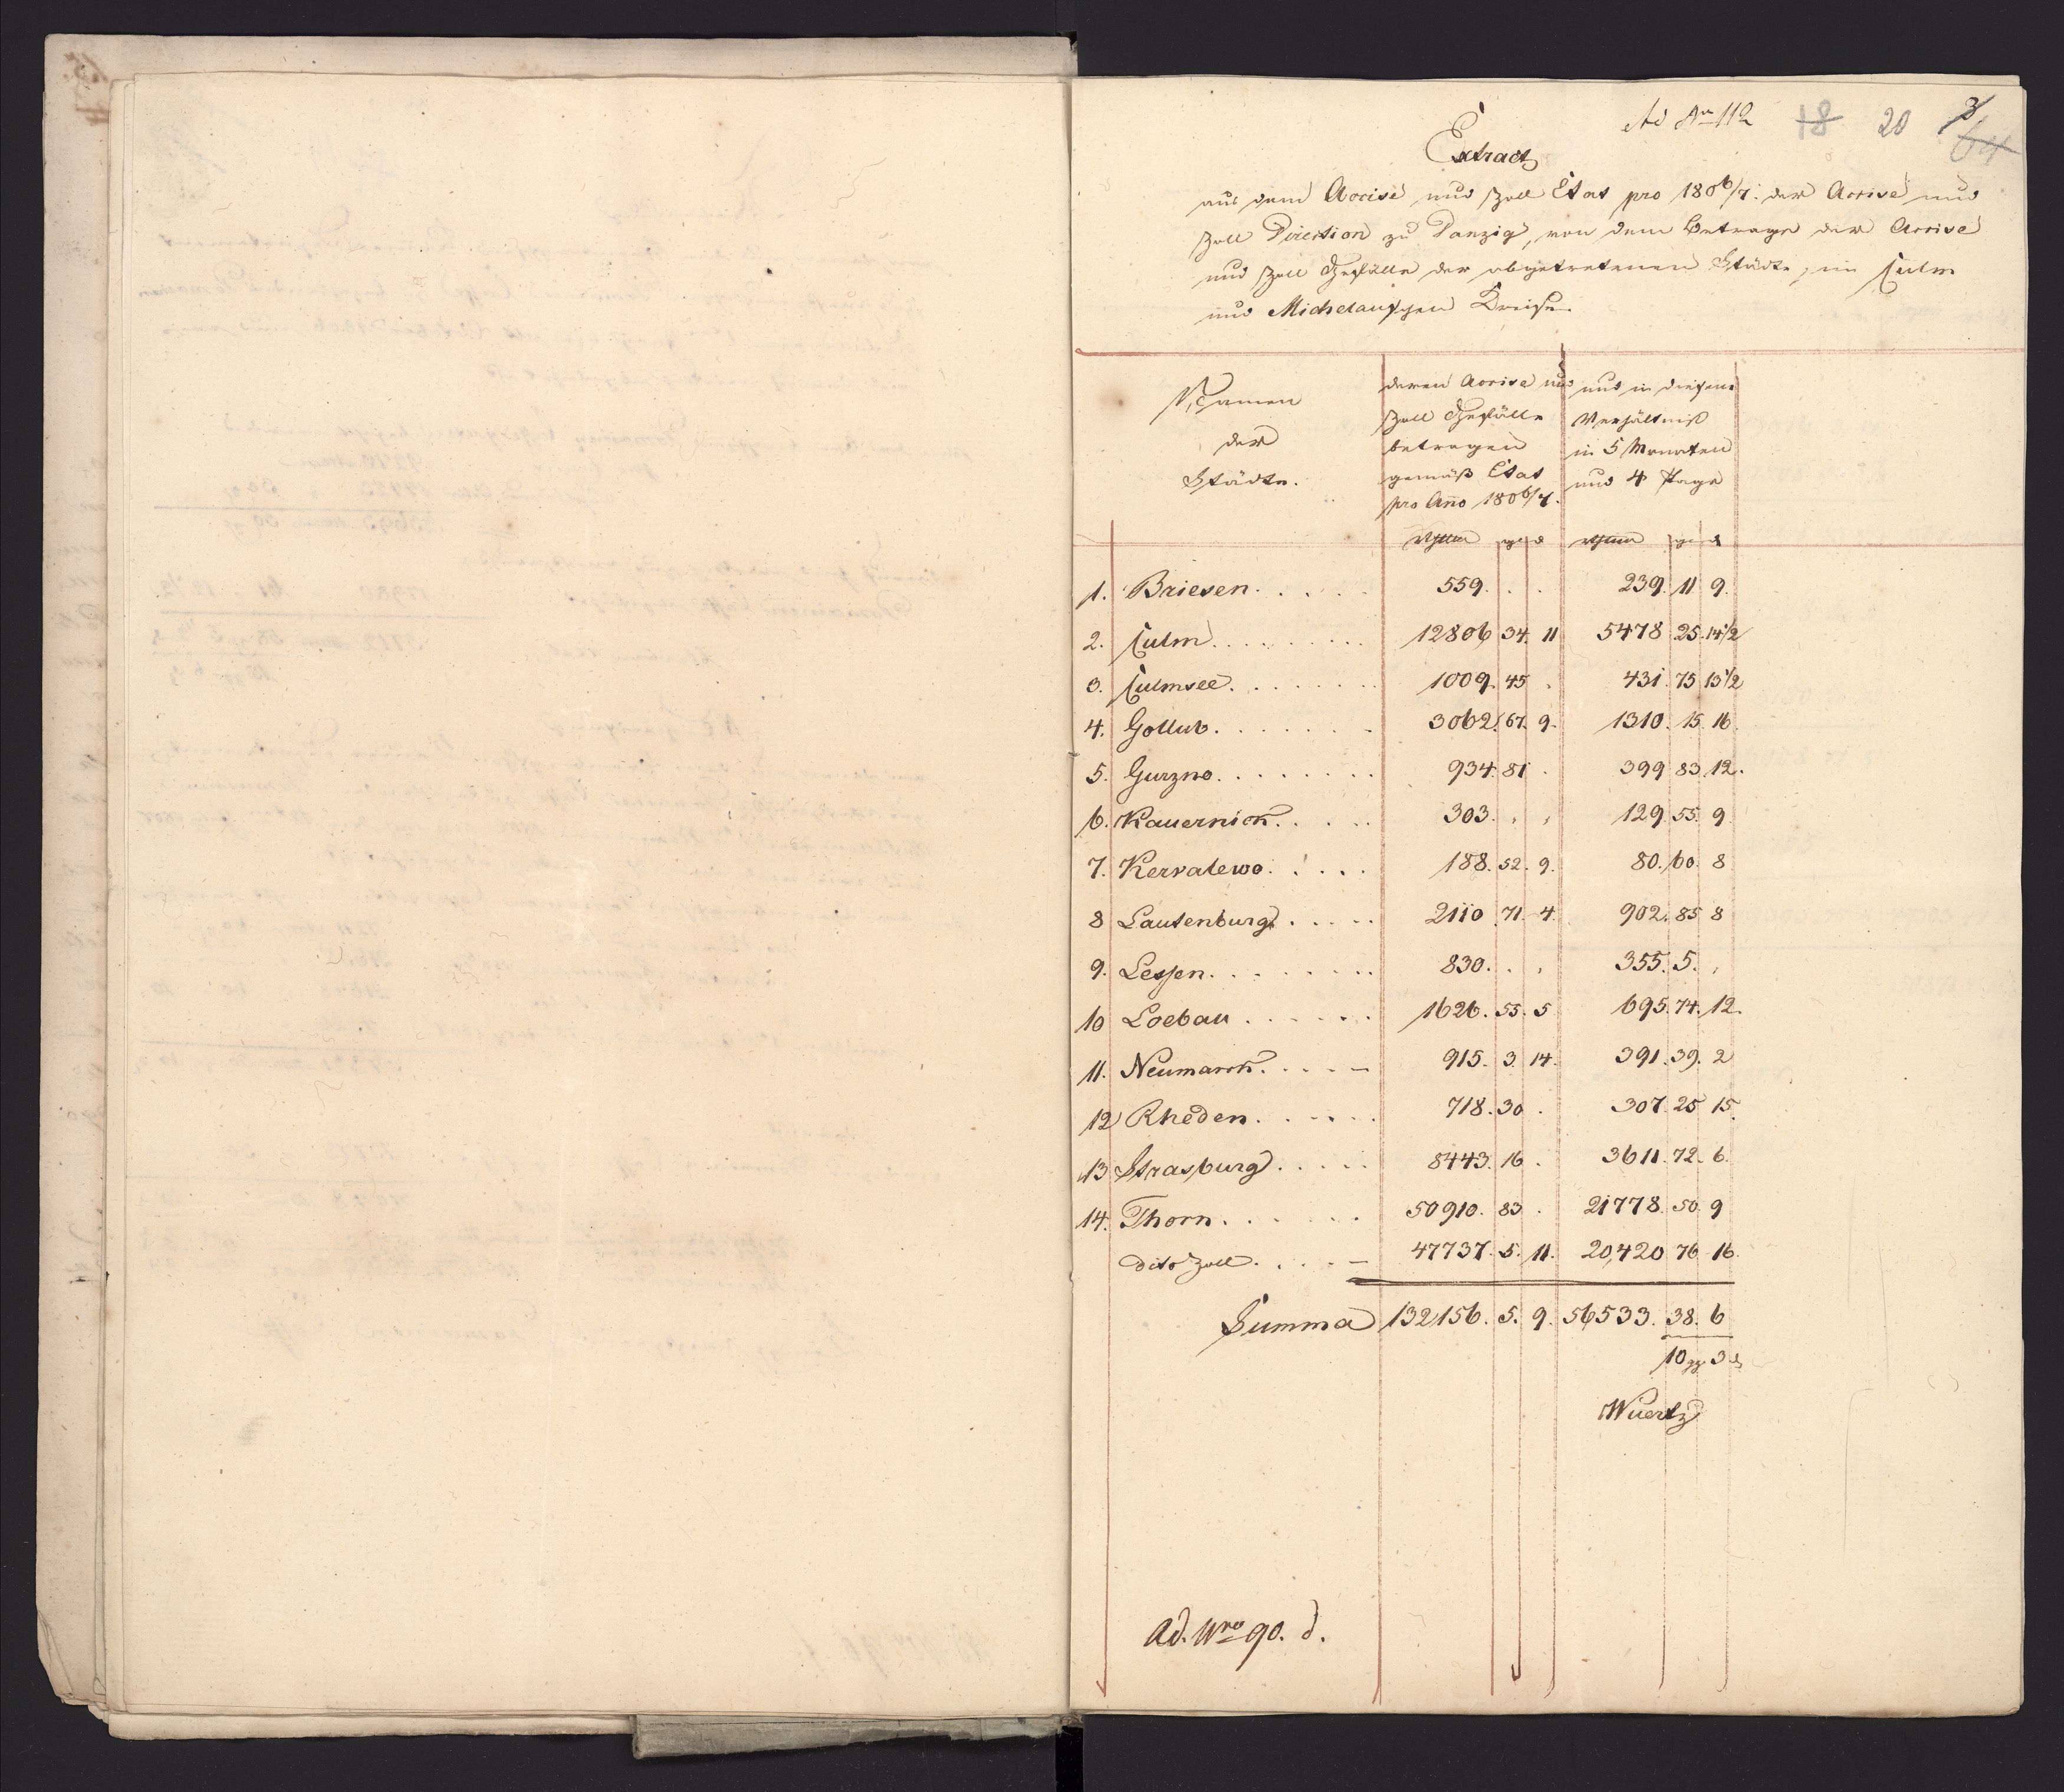 Ad Nro 112 18 20
Extract
aus dem Accise und Zoll Etat pro 1806/7. der Accise und
Zoll Direction zu Danzig, von dem Betrage der Accise
und Zoll Gefälle der abgetretenen Städte, im Culm
und Michelauschen Kreise.
Namen
der
Städte.
deren Accise und
Zoll Gefälle
betragen
gemäß Etat
pro Ano 1806/7.
und in diesem
Verhältniß
in 5 Monaten
und 4 Tage
1. Briesen. . . . . 559. . . 239. 11 9.
2. Culm . . . . . . . 12806 34. 11 5478 25. 14 1/2
3. Culmsee. . . . . . . 1009. 45 . 431. 75 13 1/2
4. Gollub. . . . . . . 3062. 67. 9. 1310. 15. 16.
5. Gurzno. . . . . . . . 934. 81 . 399 83. 12.
6. Kauernick. . . . . 303. . . 129. 55. 9.
7. Kervalewo. . . . . 188. 52. 9. 80. 60. 8
8 Lautenburg . . . . . 2110 71. 4. 902. 85 8
9. Lessen. . . . . . . . 830. . . 355. 5. .
10 Loebau . . . . . . 1626. 55. 5 695. 74. 12.
11. Neumarck. . . . . 915. 3. 14. 391. 39. 2
12 Rheden. . . . . . 718. 30 . 307. 25 15.
13 Strasburg . . . . . 8443. 16 . 3611. 72. 6.
14. Thorn. . . . . . . 50910. 83 . 21778. 50. 9
dito Zoll. . . . . 47737. 5. 11. 20,420 76 16.
Summa 132,156. 5. 9. 56533. 38. 6
10 gg 3 d
Wuertz
Ad. Nro 90. d.